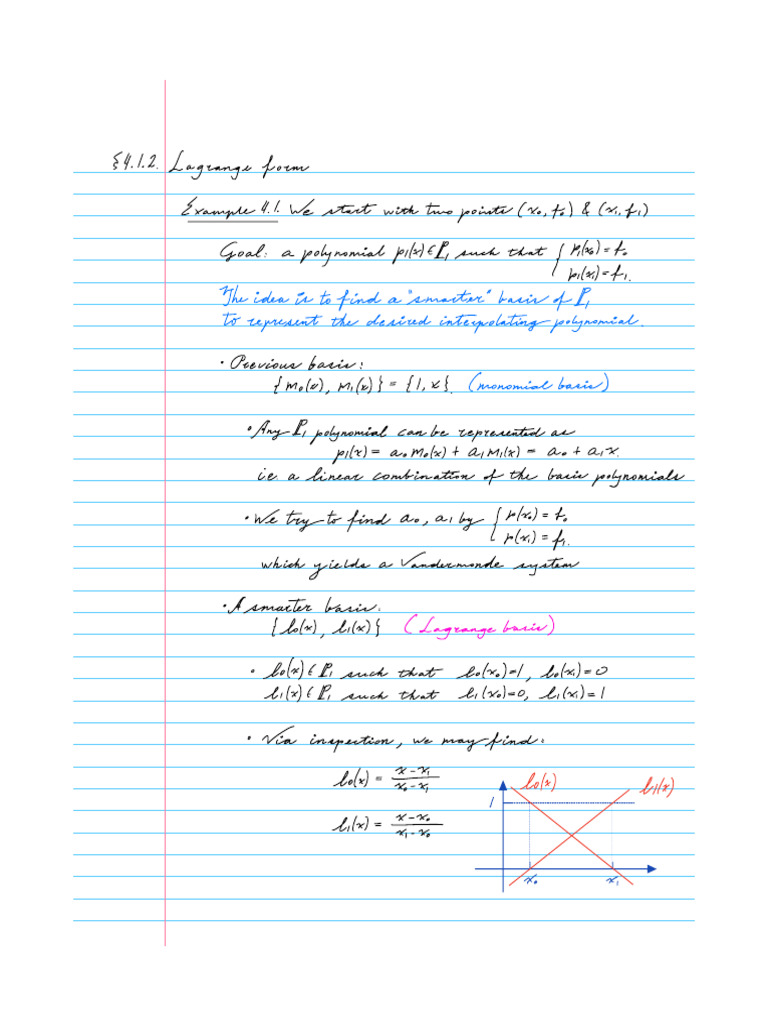 §4.1.2. Lagrange form
Example 4.1. We start with two points (x₀, f₀) & (x₁, f₁)
Goal: a polynomial p₁(x) ∈ ℙ₁ such that { p₁(x₀) = f₀
p₁(x₁) = f₁.
The idea is to find a "smarter" basis of ℙ₁
to represent the desired interpolating polynomial.
• Previous basis:
{ m₀(x), m₁(x) } = { 1, x }. (monomial basis)
• Any ℙ₁ polynomial can be represented as
p₁(x) = a₀ m₀(x) + a₁ m₁(x) = a₀ + a₁ x.
i.e. a linear combination of the basis polynomials
• We try to find a₀, a₁ by { p(x₀) = f₀
p(x₁) = f₁.
which yields a Vandermonde system
• A smarter basis:
{ l₀(x), l₁(x) } (Lagrange basis)
• l₀(x) ∈ ℙ₁ such that l₀(x₀) = 1, l₀(x₁) = 0
l₁(x) ∈ ℙ₁ such that l₁(x₀) = 0, l₁(x₁) = 1
• Via inspection, we may find:
l₀(x) = (x - x₁)/(x₀ - x₁)
l₁(x) = (x - x₀)/(x₁ - x₀)
l₀(x) l₁(x)
1
x₀ x₁